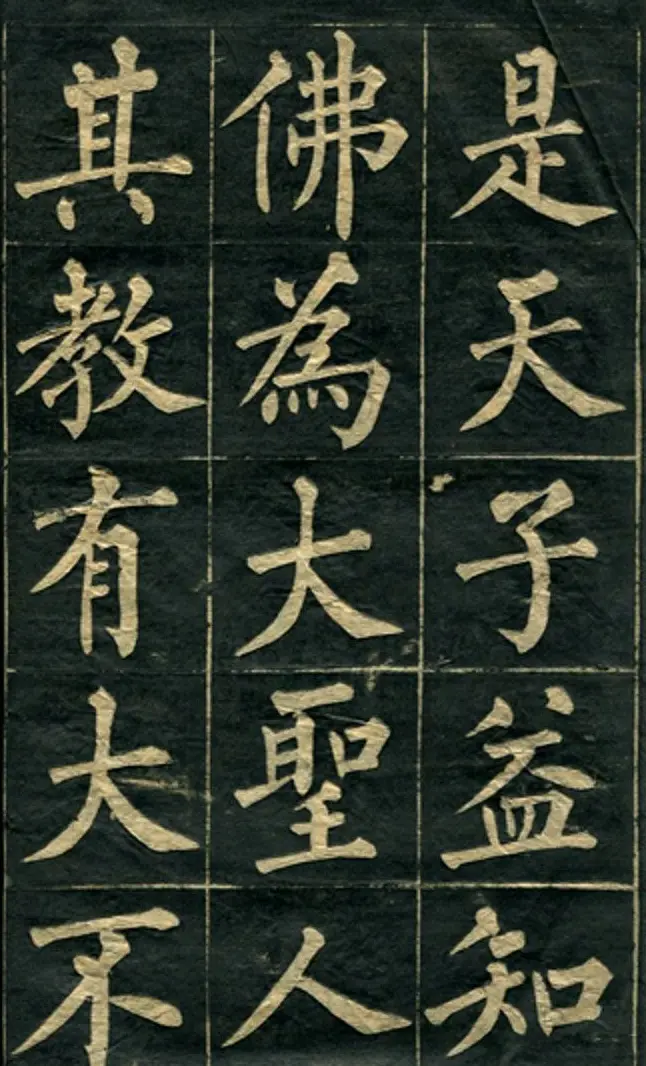 是天子益知
佛為大聖人
其教有大不